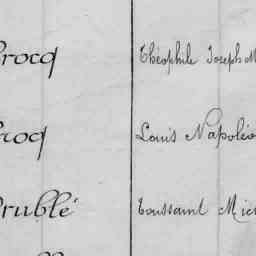 rocq Théophile Joseph M
rocq Louis Napoléo
rublé Toussaint Mic